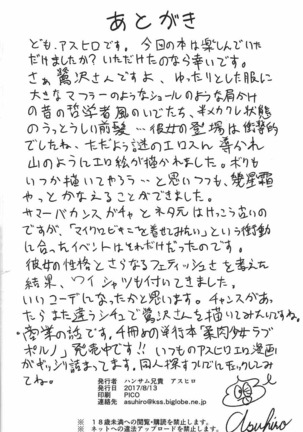 あとがき
ども、アスヒロです。今回の本は楽しんでいた
だけましたか？いただけたのなら幸いです。
さぁ鷺沢さんですよ、ゆったりとした服に
大きなマフラーのようなショールのような肩かけ
の昔の哲学者風のいでたち、半メカクレ状態
のうっとうしい前髪…彼女の登場は衝撃的
でしたね、ただよう謎のエロスに導かれ
山のようにエロ絵が描かれました。ボクも
いつか描いてやろう…と思いつつも、幾星霜
やっとかなえることができました。
サマーバカンスガチャとネタ元はけっこう古いの
ですが、「マイクロビキニを着せてみたい」という衝動
に合ったイベントはそれだけだったのです。
彼女の性格とさらなるフェティッシュさを考えた
結果、ワイシャツも付いてきました。
いいコーデになったかと思います。チャンスがあっ
たらまた違うシチュで鷺沢さんを描いてみたいですね。
・商業の話です。4冊めの単行本「柔肉少女ラブ
ポルノ」発売中です!!いつものアスヒロエロ漫画
がギッシリ詰まってます。同人探すついでにチェックしてみ
てね。
発行者 ハンサム兄貴 アスヒロ
発行日 2017/8/13
印刷 PICO
連絡先 asuhiro@kss.biglobe.ne.jp
※18歳未満への閲覧・購読を禁止します。
※ネットへの違法アップロードを禁止します。
Asuhiro